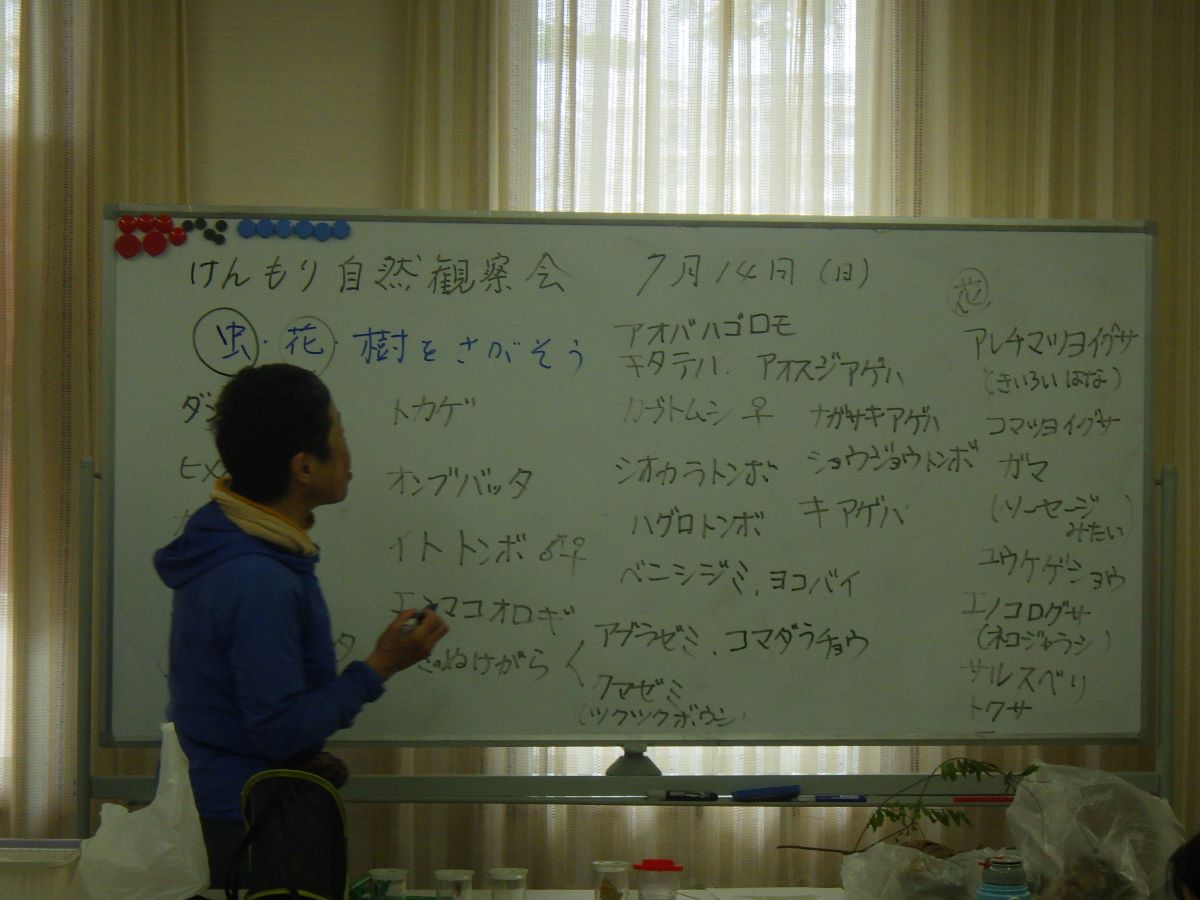 けんもり自然観察会 7月14日(日)
虫・花・樹をさがそう
ヒメ
トカゲ
オンブバッタ
イトトンボ ♂♀
エンマコオロギ
のぬけがら〈
アオバハゴロモ
キタテハ. アオスジアゲハ
カブトムシ♀ ナガサキアゲハ
シオカラトンボ ショウジョウトンボ
ハグロトンボ キアゲハ
ベニシジミ、ヨコバイ
アブラゼミ、コマダラチョウ
クマゼミ
(ツクツクボウシ)
花
アレチマツヨイグサ
(きいろいはな)
コマツヨイグサ
ガマ
(ソーセージ
みたい)
ユウケゲショウ
エノコログサ
(ネコジャラシ)
サルスベリ
トクサ